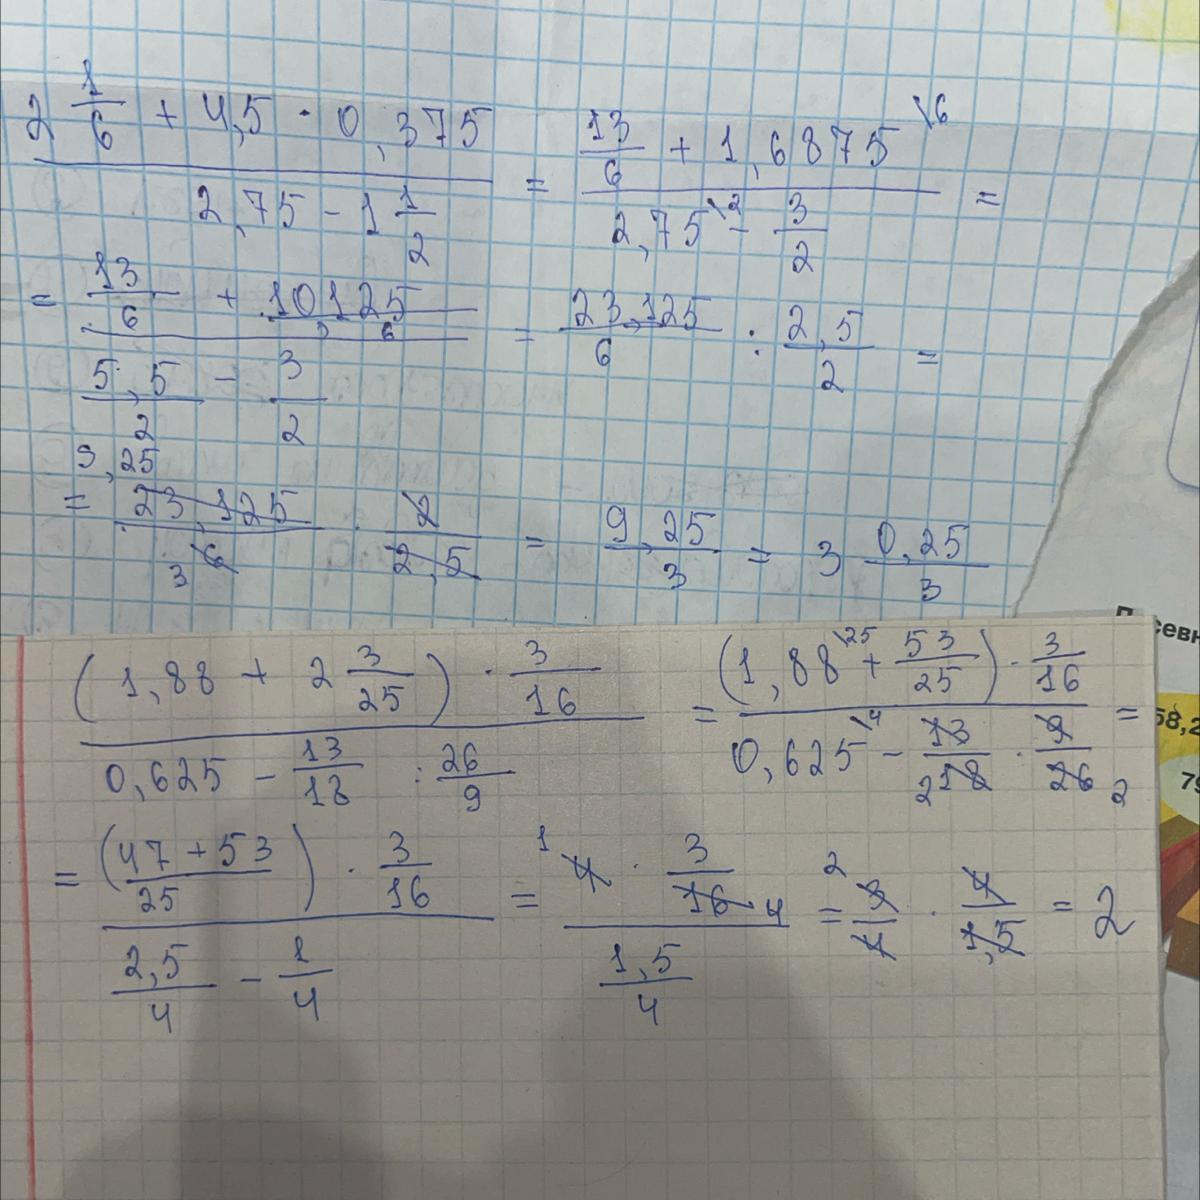 2 1/6 + 4,5 · 0,375 / 2,75 - 1 1/2 = 13/6 + 1,6875 \6 / 2,75 \2 - 3/2 =
= 13/6 + 10,125/6 / 5,5/2 - 3/2 = 23,125/6 : 2,5/2 =
9,25
= 23,125/6 3 · 2/2,5 = 9,25/3 = 3 0,25/3
(1,88 + 2 3/25) · 3/16 / 0,625 - 13/18 : 26/9 = (1,88 \25 + 53/25) · 3/16 / 0,625 \4 - 13/2 18 · 9/26 2 =
= (47 + 53/25) · 3/16 / 2,5/4 - 1/4 = 1 4 · 3/16 4 / 1,5/4 = 2 3/4 · 4/1,5 = 2
севн
58,2
79